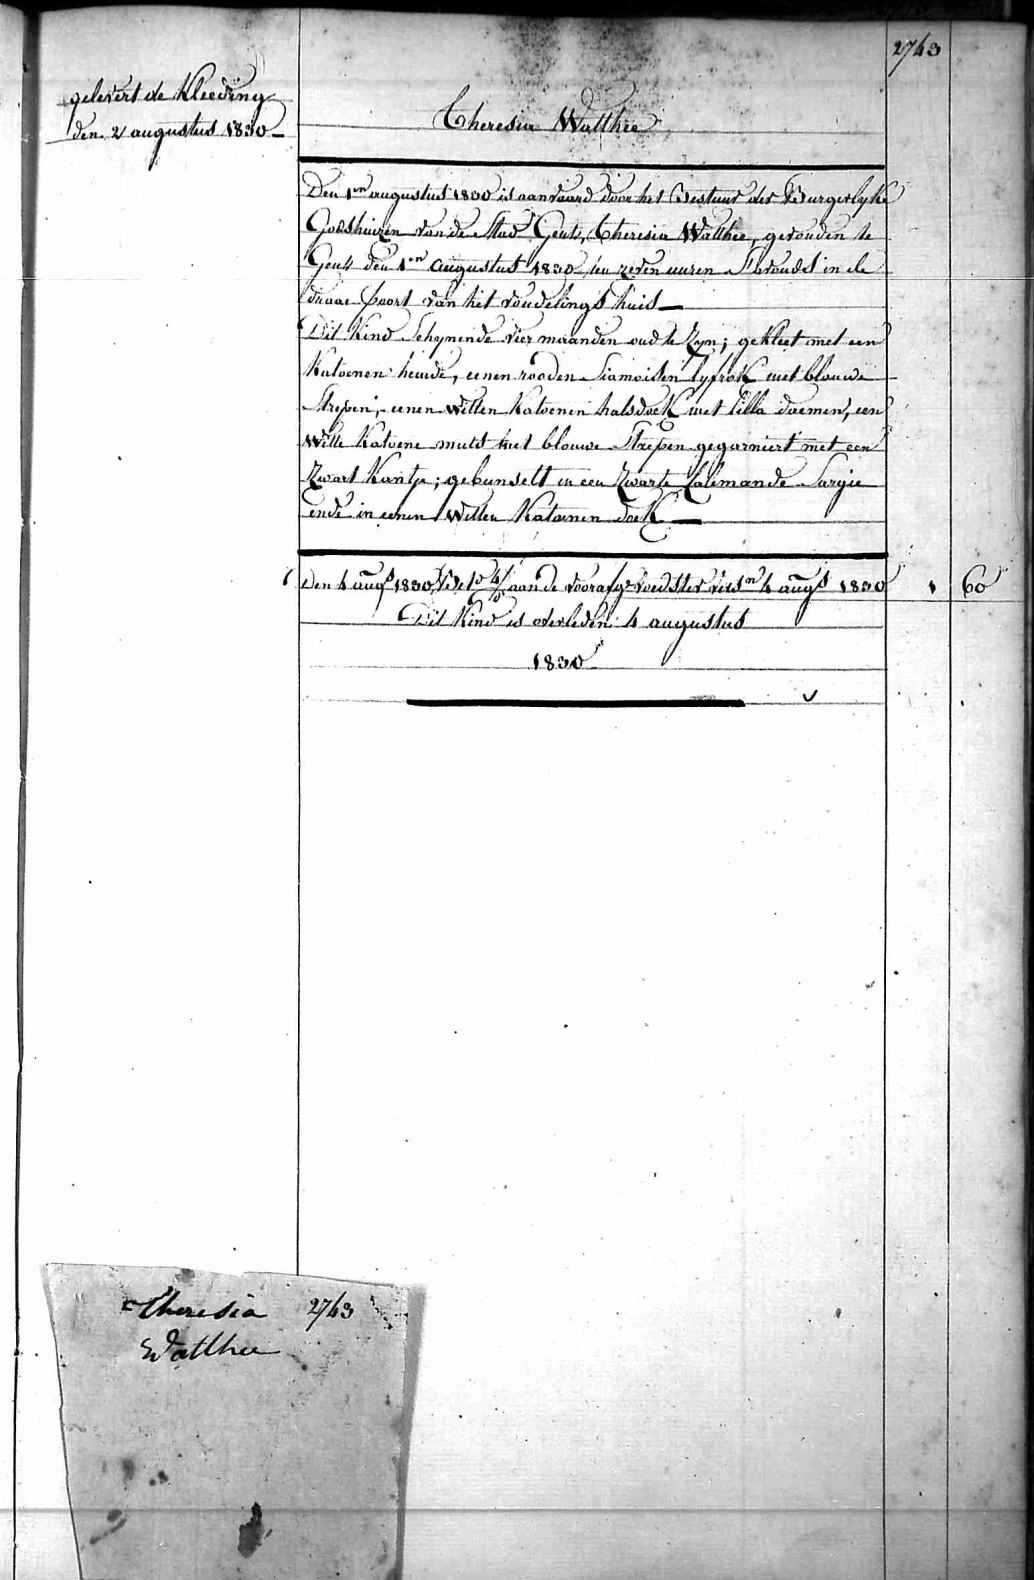 2743
gelevert de Kleeding
den 2 augustus 1830
Theresia Watthée
Den 1en augustus 1830 is aanvaard door het Bestuur der Burgerlyke
Godshuizen van de Stad Gent, Theresia Watthée, gevonden te
Gent den 1en augustus 1830 ten zeven uuren S'avonds in de
draae-poort van het vondelings huis
Dit Kind Schynende vier maanden oud te Zyn; gekleet met een
Katoenen hemde, eenen rooden Siamoisen lyfrok met blauwe
Strepen, eenen witten Katoenen halsdoek met lilla bloemen, een
Witte Katoene muts met blauwe Strepen gegarniert met een
Zwart Kantje; gebunselt in een Zwarte Calemande Sargie
ende in eenen Witten Katoenen doek
Den 4 augs 1830 aan de voedster 4 augs 1830 1 60
Dit Kind is overleden 4 augustus
1830
Theresia 2743
Watthee